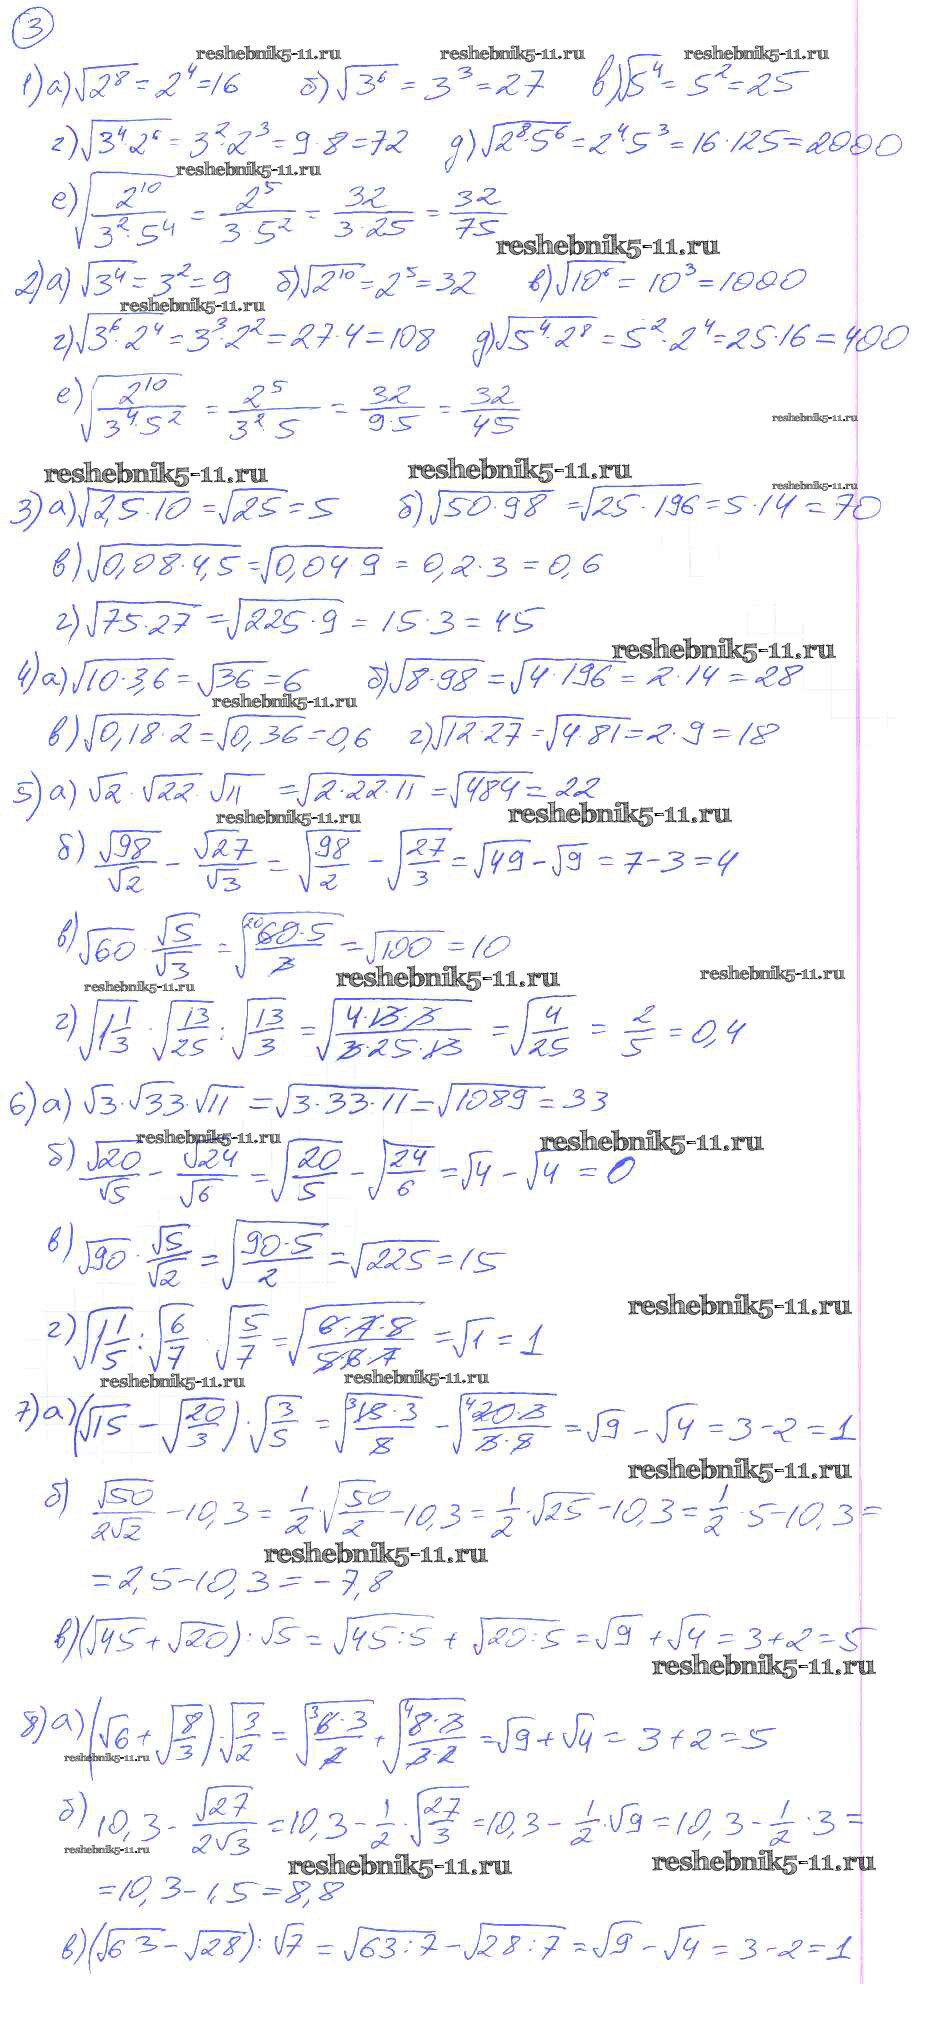 3
reshebnik5-11.ru reshebnik5-11.ru reshebnik5-11.ru
1) а) √2⁸ = 2⁴ = 16 б) √3⁶ = 3³ = 27 в) √5⁴ = 5² = 25
г) √3⁴·2⁶ = 3²·2³ = 9·8 = 72 д) √2⁸·5⁶ = 2⁴·5³ = 16·125 = 2000
reshebnik5-11.ru
е) √(2¹⁰/(3²·5⁴)) = 2⁵/(3·5²) = 32/(3·25) = 32/75
reshebnik5-11.ru
2) а) √3⁴ = 3² = 9 б) √2¹⁰ = 2⁵ = 32 в) √10⁶ = 10³ = 1000
reshebnik5-11.ru
г) √3⁶·2⁴ = 3³·2² = 27·4 = 108 д) √5⁴·2⁸ = 5²·2⁴ = 25·16 = 400
е) √(2¹⁰/(3⁴·5²)) = 2⁵/(3²·5) = 32/(9·5) = 32/45
reshebnik5-11.ru
reshebnik5-11.ru reshebnik5-11.ru reshebnik5-11.ru
3) а) √2,5·10 = √25 = 5 б) √50·98 = √25·196 = 5·14 = 70
в) √0,08·4,5 = √0,04·9 = 0,2·3 = 0,6
г) √75·27 = √225·9 = 15·3 = 45
reshebnik5-11.ru
4) а) √10·3,6 = √36 = 6 б) √8·98 = √4·196 = 2·14 = 28
reshebnik5-11.ru
в) √0,18·2 = √0,36 = 0,6 г) √12·27 = √4·81 = 2·9 = 18
5) а) √2·√22·√11 = √2·22·11 = √484 = 22
reshebnik5-11.ru reshebnik5-11.ru
б) √98/√2 − √27/√3 = √(98/2) − √(27/3) = √49 − √9 = 7 − 3 = 4
в) √60·√5/√3 = √(²⁰60·5/3) = √100 = 10
reshebnik5-11.ru reshebnik5-11.ru reshebnik5-11.ru
г) √(1 1/3)·√(13/25) : √(13/3) = √(4·13·3/(3·25·13)) = √(4/25) = 2/5 = 0,4
6) а) √3·√33·√11 = √3·33·11 = √1089 = 33
reshebnik5-11.ru reshebnik5-11.ru
б) √20/√5 − √24/√6 = √(20/5) − √(24/6) = √4 − √4 = 0
в) √90·√5/√2 = √(90·5/2) = √225 = 15
reshebnik5-11.ru
г) √(1 1/5) : √(6/7)·√(5/7) = √(6·7·5/(5·6·7)) = √1 = 1
reshebnik5-11.ru reshebnik5-11.ru
7) а) (√15 − √(20/3))·√(3/5) = √(³15·3/5) − √(⁴20·3/(3·5)) = √9 − √4 = 3 − 2 = 1
reshebnik5-11.ru
б) √50/(2√2) − 10,3 = 1/2·√(50/2) − 10,3 = 1/2·√25 − 10,3 = 1/2·5 − 10,3 =
reshebnik5-11.ru
= 2,5 − 10,3 = −7,8
в) (√45 + √20) : √5 = √45:5 + √20:5 = √9 + √4 = 3 + 2 = 5
reshebnik5-11.ru
8) а) (√6 + √(8/3))·√(3/2) = √(³6·3/2) + √(⁴8·3/(3·2)) = √9 + √4 = 3 + 2 = 5
reshebnik5-11.ru
б) 10,3 − √27/(2√3) = 10,3 − 1/2·√(27/3) = 10,3 − 1/2·√9 = 10,3 − 1/2·3 =
reshebnik5-11.ru reshebnik5-11.ru reshebnik5-11.ru
= 10,3 − 1,5 = 8,8
в) (√63 − √28) : √7 = √63:7 − √28:7 = √9 − √4 = 3 − 2 = 1